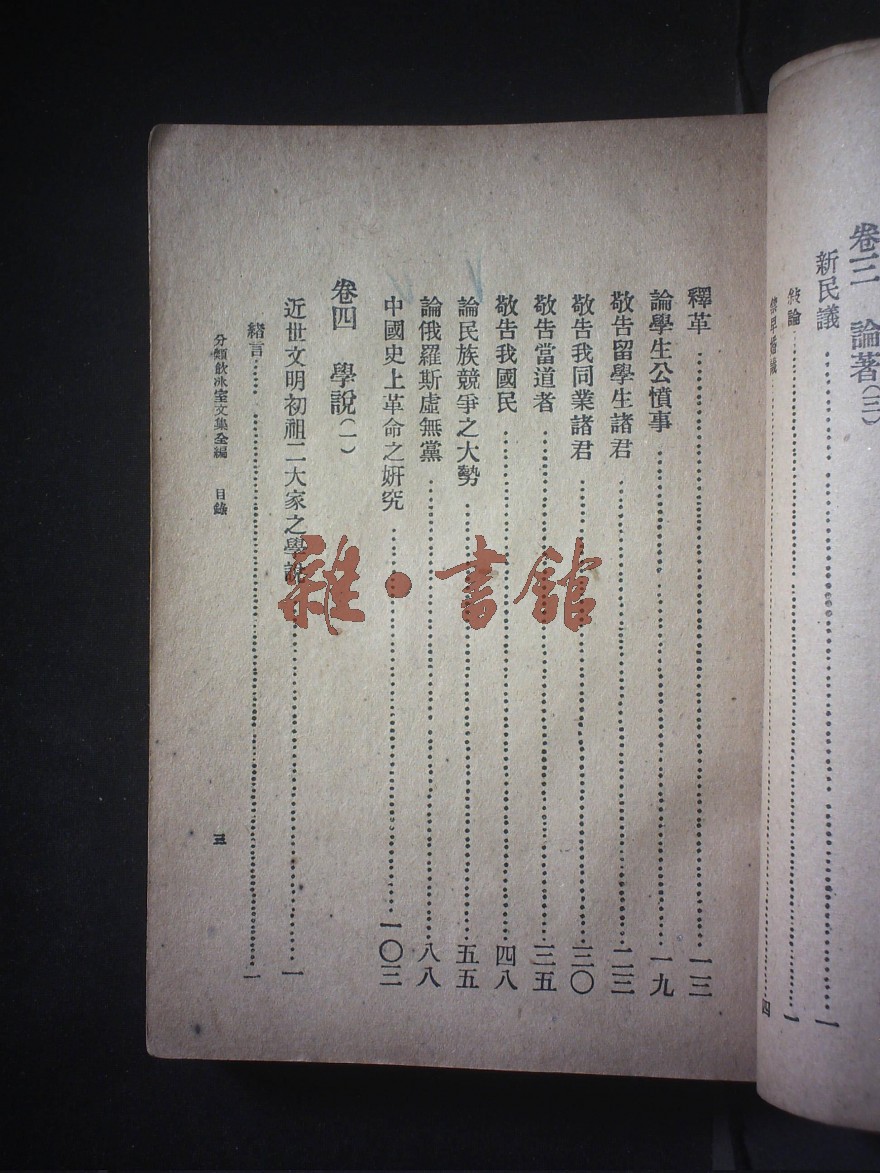 卷三　論著(三)
新民議……一
敍論……一
禁早婚議……四
釋革……一三
論學生公憤事……一九
敬告留學生諸君……二三
敬告我同業諸君……三〇
敬告當道者……三五
敬告我國民……四八
論民族競爭之大勢……五五
論俄羅斯虛無黨……八八
中國史上革命之姸究……一〇三
卷四　學說(一)
近世文明初祖二大家之學說……一
緖言……一
分類飲冰室文集全編　目錄
三
雜·書館